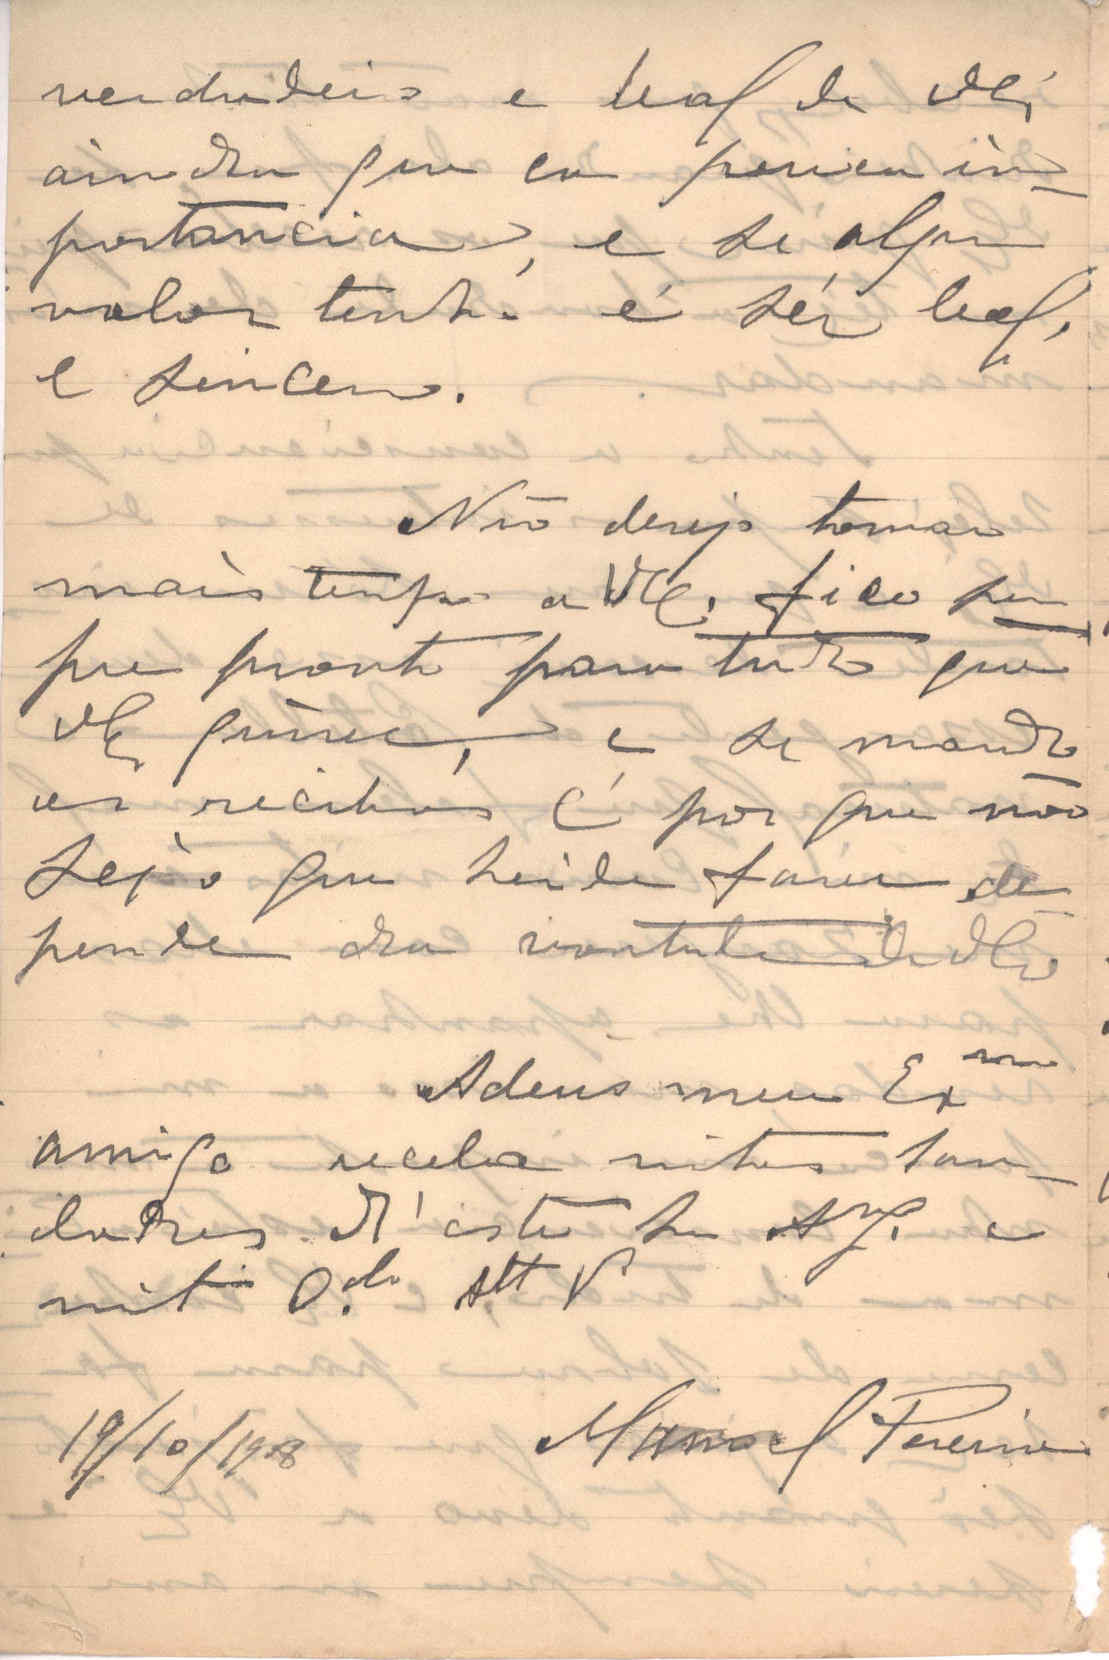 verdadeiro e leal de VEx,
ainda que eu pouca im-
portancia, e se algum
valor tenho é sér leal,
e sincero.
Não desejo tomar
mais tempo a VEx, fico sem
pre pronto para tudo que
VEx quizer, e se mando
os recibos é por que não
sei o que hei de fazer, de-
pende da vontade de VExa
Adeus meu Exmo
amigo receba mitas sau-
dades d'este seu Amg. e
mit. O.do Att V
19/10/1908 Manoel Pereira